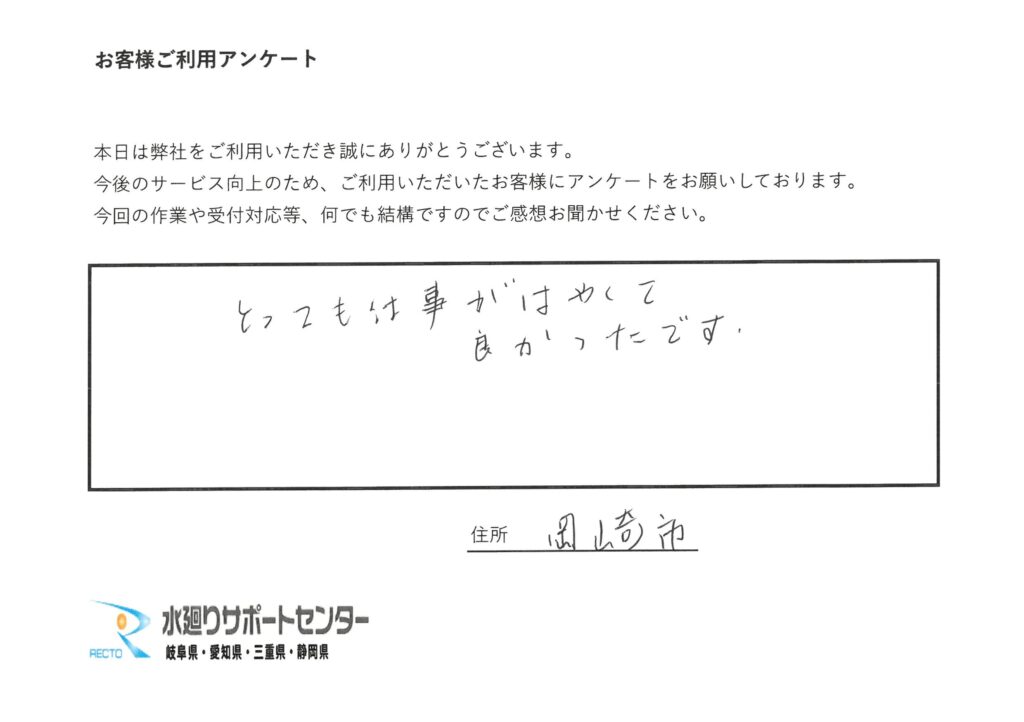 お客様ご利用アンケート
本日は弊社をご利用いただき誠にありがとうございます。
今後のサービス向上のため、ご利用いただいたお客様にアンケートをお願いしております。
今回の作業や受付対応等、何でも結構ですのでご感想お聞かせください。
とっても仕事がはやくて
良かったです.
住所 岡崎市
水廻りサポートセンター
RECTO 岐阜県・愛知県・三重県・静岡県